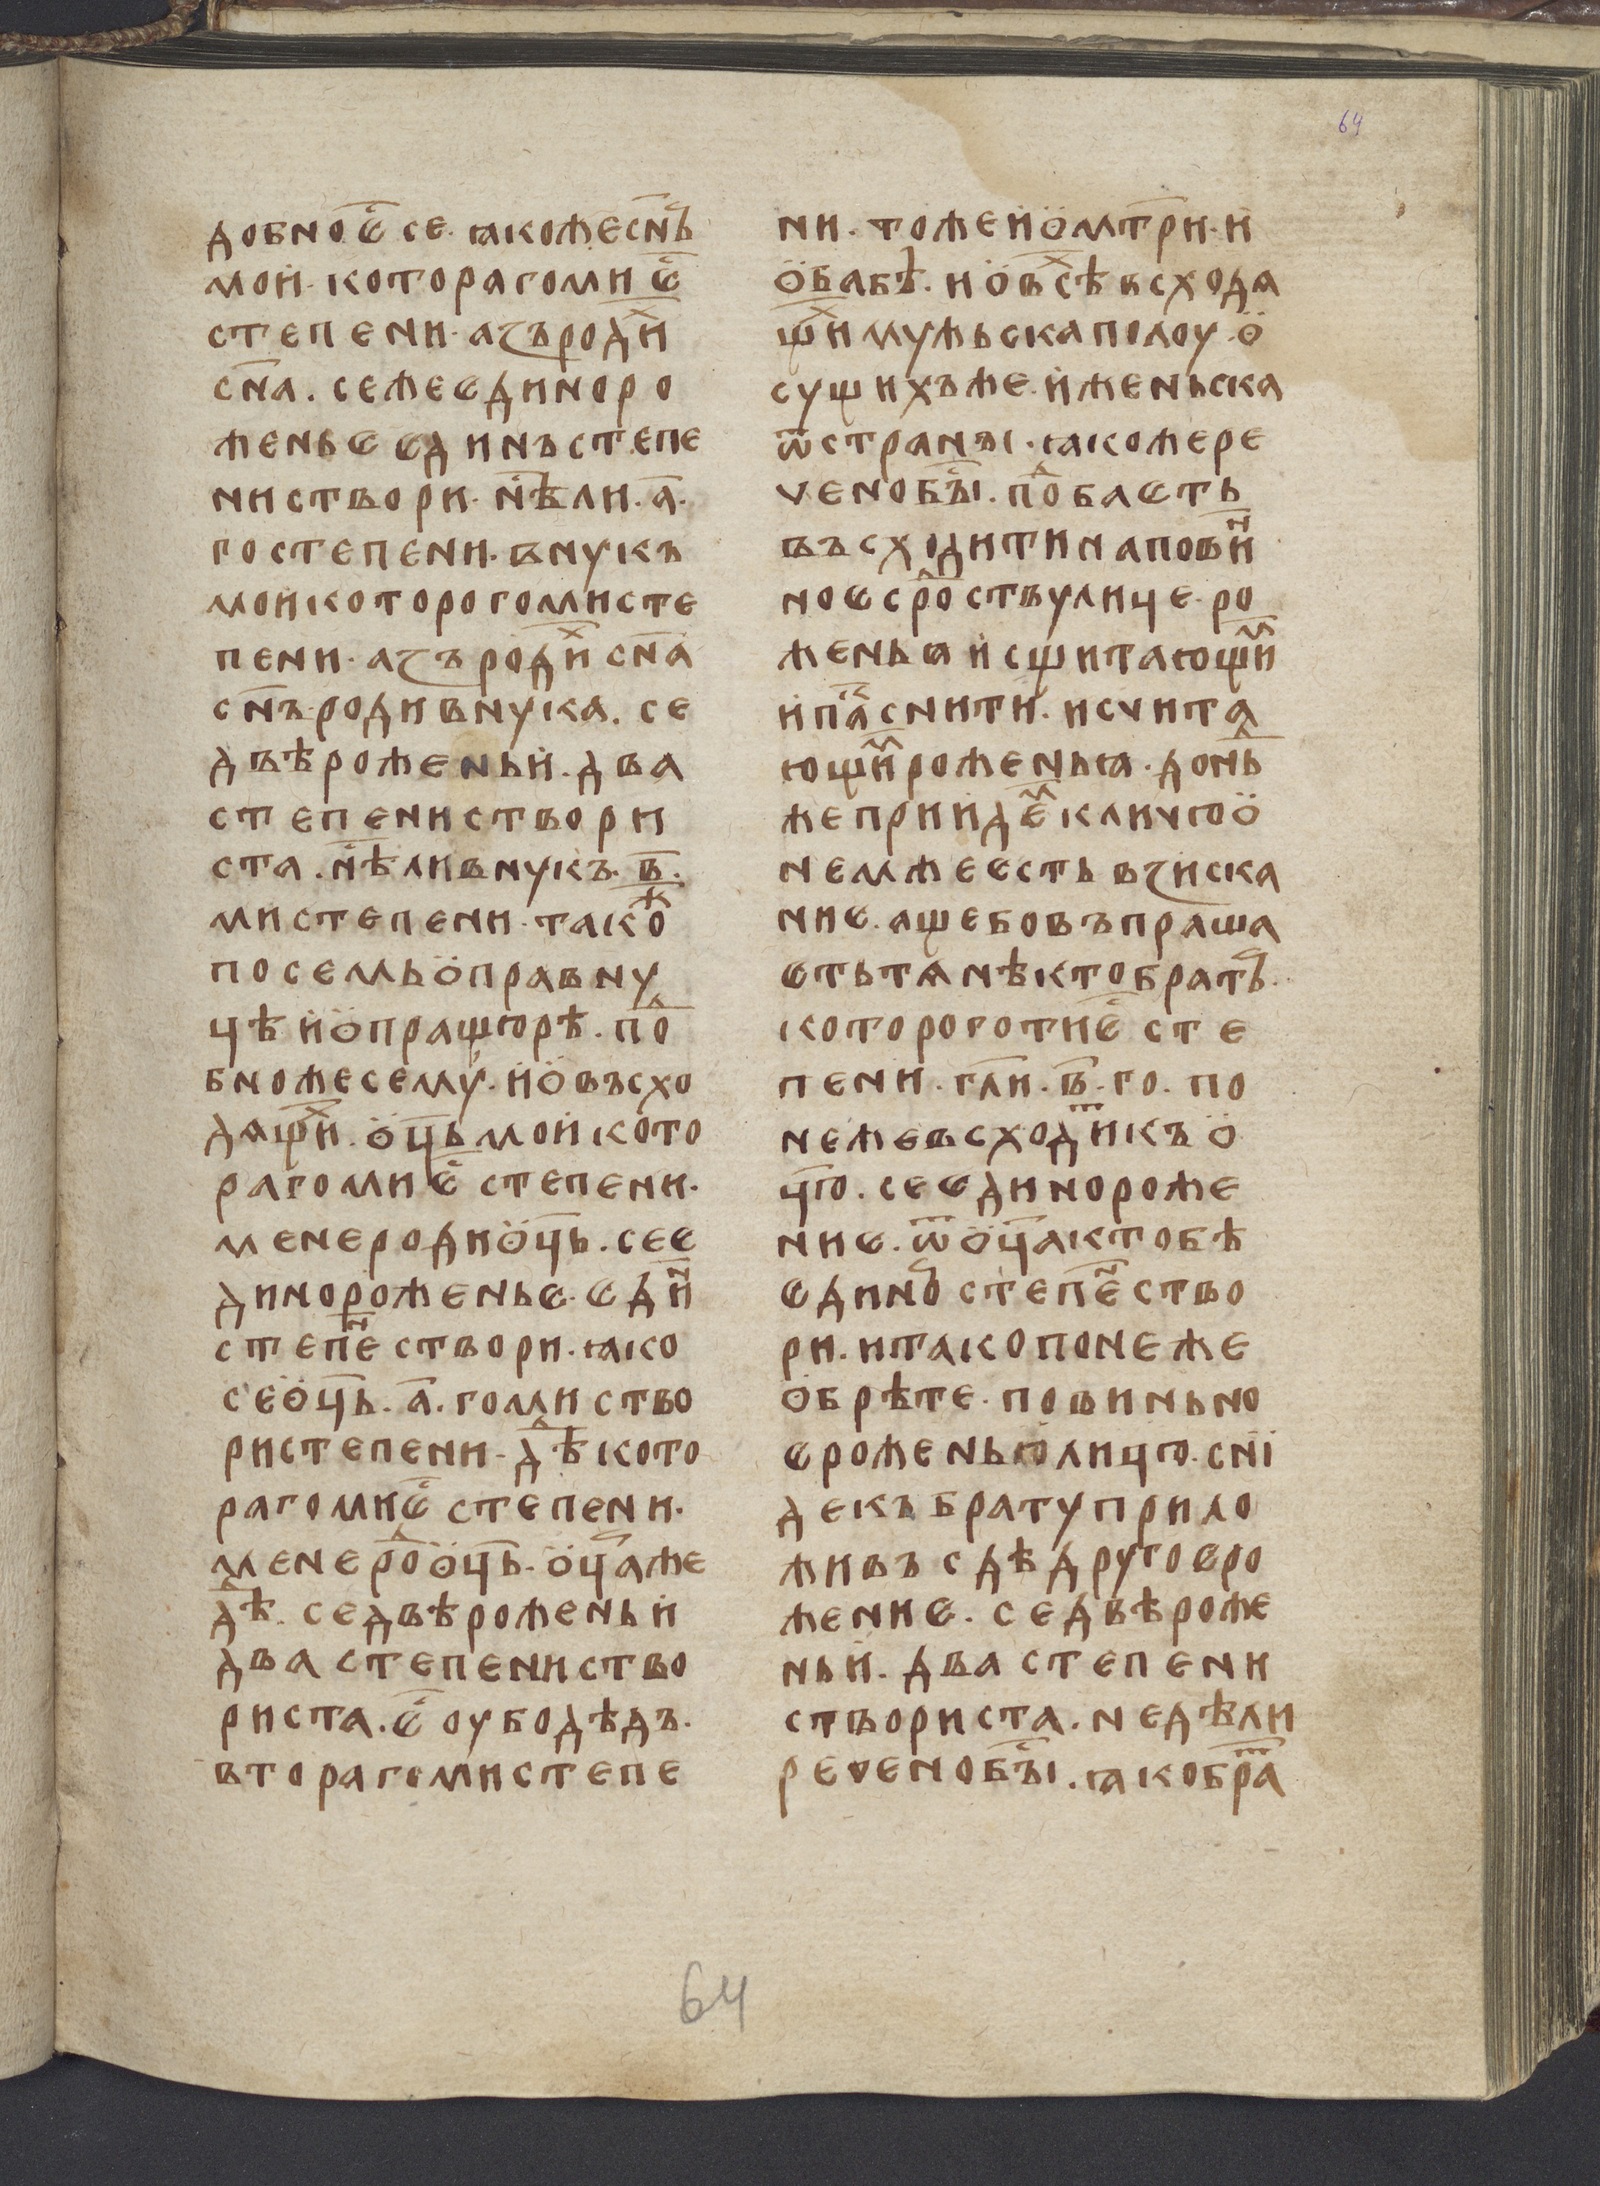 64
добно є҃ се. ꙗкоже сн҃ъ
мои҆. котораго ми є҃
степени. азъ родиⷯ
сн҃а. се же єдино ро
женьє єдинъ степе
ни створи. нѣ ли. а҃.
го степени. внукъ
мои҆ которого ми сте
пени. азъ родиⷯ сн҃а
сн҃ъ роди внука. се
двѣ роженьи҆. два
степени створи
ста. нѣ ли внукъ. в҃.
ми степени. такоⷤ
по семь ѻ правну
цѣ и҆ ѻ пращюрѣ. поⷣ
бно же сему. и҆ ѻ въсхо
дѧщиⷯ. ѻц҃ь мои҆ кото
раго ми є҃ степени.
мене роди ѻц҃ь. се є
дино роженьє. єдиⷩ
степеⷩ створи. ꙗко
се ѻц҃ь. а҃. го ми ство
ри степени. дѣⷣ кото
раго ми є҃ степени.
мене роⷣ ѻц҃ь. ѻц҃а же
дѣⷣ. се двѣ роженьи҆
два степени ство
риста. є҃ оубо дѣдъ.
втораго ми степе
ни. тоже и҆ ѻ мт҃ри. и҆
ѻ бабѣ. и ѻ всѣⷯ всходѧ
щиⷯ мужьска полоу. ѻ
сущихъ же. и҆ женьска
ѿ страны. ꙗкоже ре
чено бы҃. поⷣбаєть
въсходити на повиⷩ
ноє сроⷣству лице. ро
женьꙗ и҆сщитающиⷨ
и҆ паⷦ снити. исчита
ющиⷨ роженьꙗ. доньⷣ
же прии҆деⷨ к личю ѻ
нем же єсть взиска
ниє. аще бо въпраша
єть тѧ нѣкто братъ.
которого ти є҃ сте
пени. гл҃и. в҃. го. по
неже всходиⷮ къ ѻ
ц҃ю. се єдино роже
ниє. ѿ ѻц҃а кто бѣ
єдино степеⷩ ство
ри. и тако понеже
ѻбрѣте. повиньно
є роженью лицю. сні
де къ брату прило
живъ сдѣ другоє ро
жениє. се двѣ роже
ньи҆. два степени
створиста. не дѣли
речено бы҃. ꙗко браⷮ
64